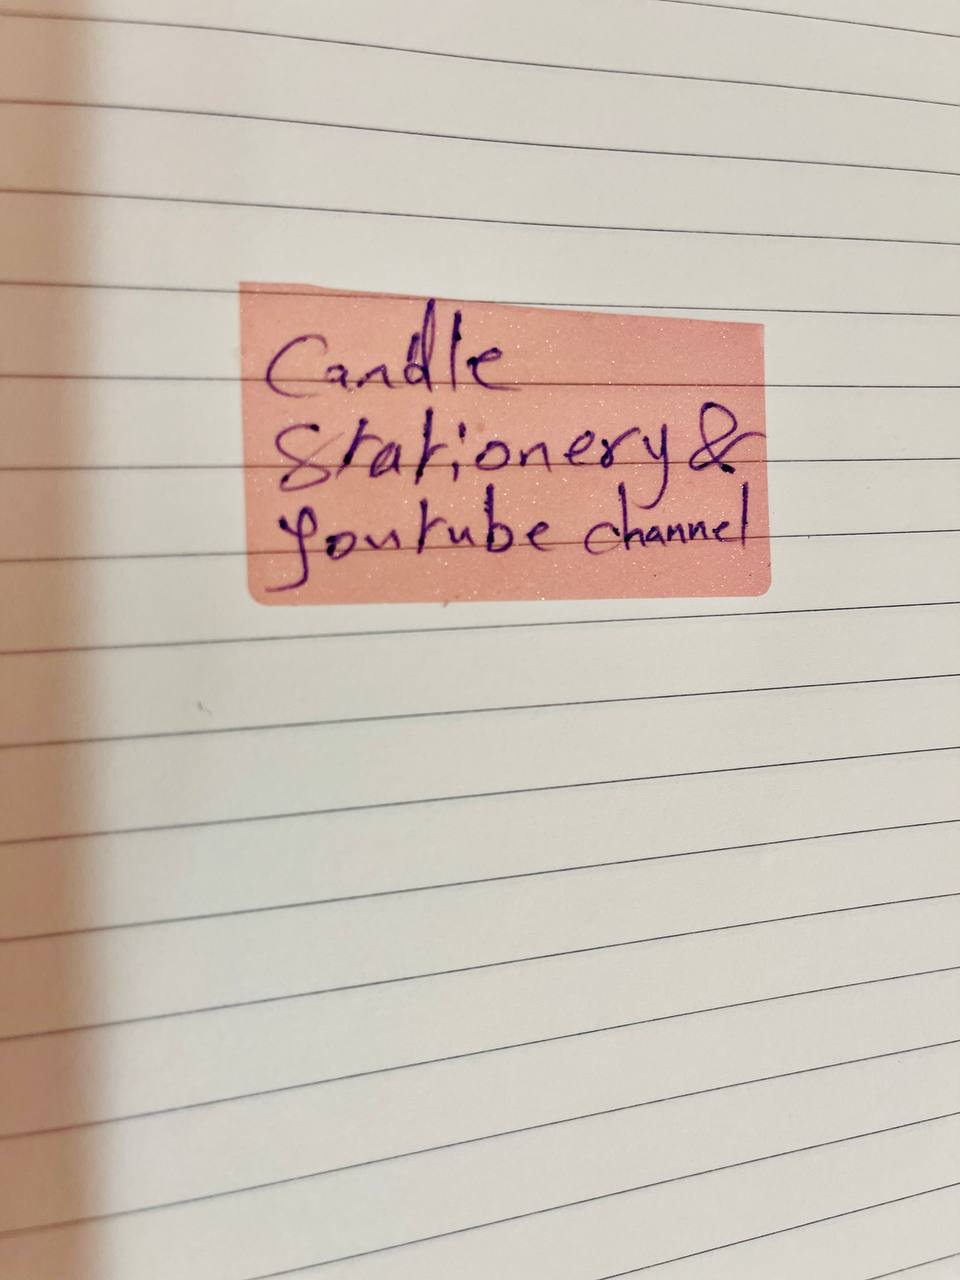 Candle
Stationery &
Youtube channel